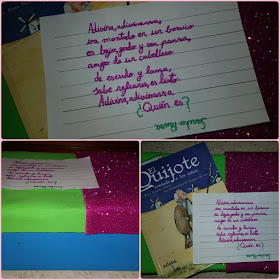 Adivina, adivinanza,
va montado en un borrico
es bajo, gordo y con panza,
amigo de un caballero
de escudo y lanza,
sabe refranes, es listo
Adivina, adivinanza
¿Quién es?
Sancho Panza
El
Quijote
Adivina, adivinanza,
va montado en un borrico
es bajo, gordo y con panza,
amigo de un caballero
de escudo y lanza,
sabe refranes, es listo
Adivina, adivinanza
¿Quién es?
Sancho Panza